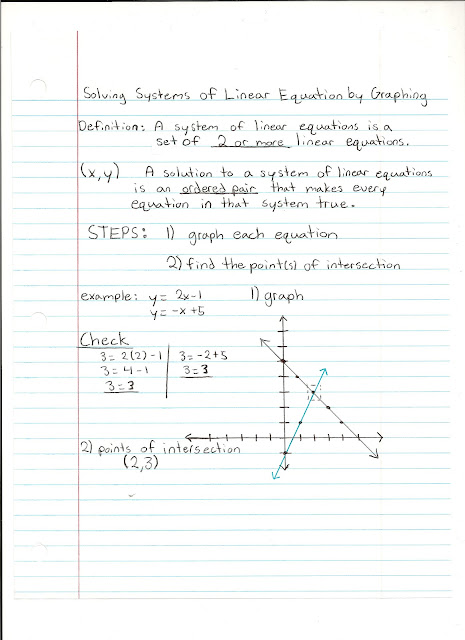 Solving Systems of Linear Equation by Graphing
Definition: A system of linear equations is a
set of 2 or more linear equations.
(x,y) A solution to a system of linear equations
is an ordered pair that makes every
equation in that system true.
STEPS: 1) graph each equation
2) find the point(s) of intersection
example: y = 2x-1 1) graph
y = -x+5
Check
3 = 2(2)-1 3 = -2+5
3 = 4-1 3 = 3
3 = 3
2) points of intersection
(2,3)